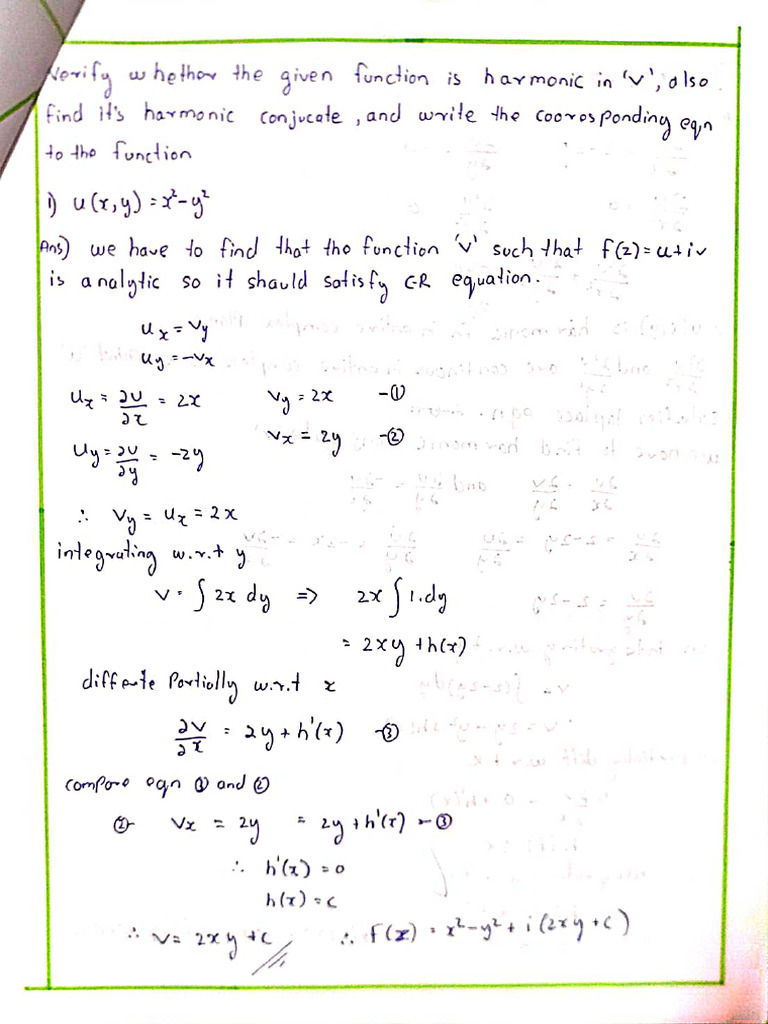 Verify whether the given function is harmonic in 'v', also
find it's harmonic conjucate, and write the cooresponding eqn
to the function
i) u(x,y) = x² - y²
Ans) we have to find that the function 'v' such that f(z) = u + iv
is analytic so it should satisfy C-R equation.
u_x = v_y
u_y = -v_x
u_x = ∂u/∂x = 2x    v_y = 2x -①
u_y = ∂u/∂y = -2y    v_x = 2y -②
∴ v_y = u_x = 2x
integrating w.r.t y
v = ∫ 2x dy => 2x ∫ 1.dy
= 2xy + h(x)
diffente Partially w.r.t x
∂v/∂x = 2y + h'(x) -③
compare eqn ① and ②
②- v_x = 2y = 2y + h'(x) -③
∴ h'(x) = 0
h(x) = c
∴ v = 2xy + c    ∴ f(z) = x² - y² + i (2xy + c)